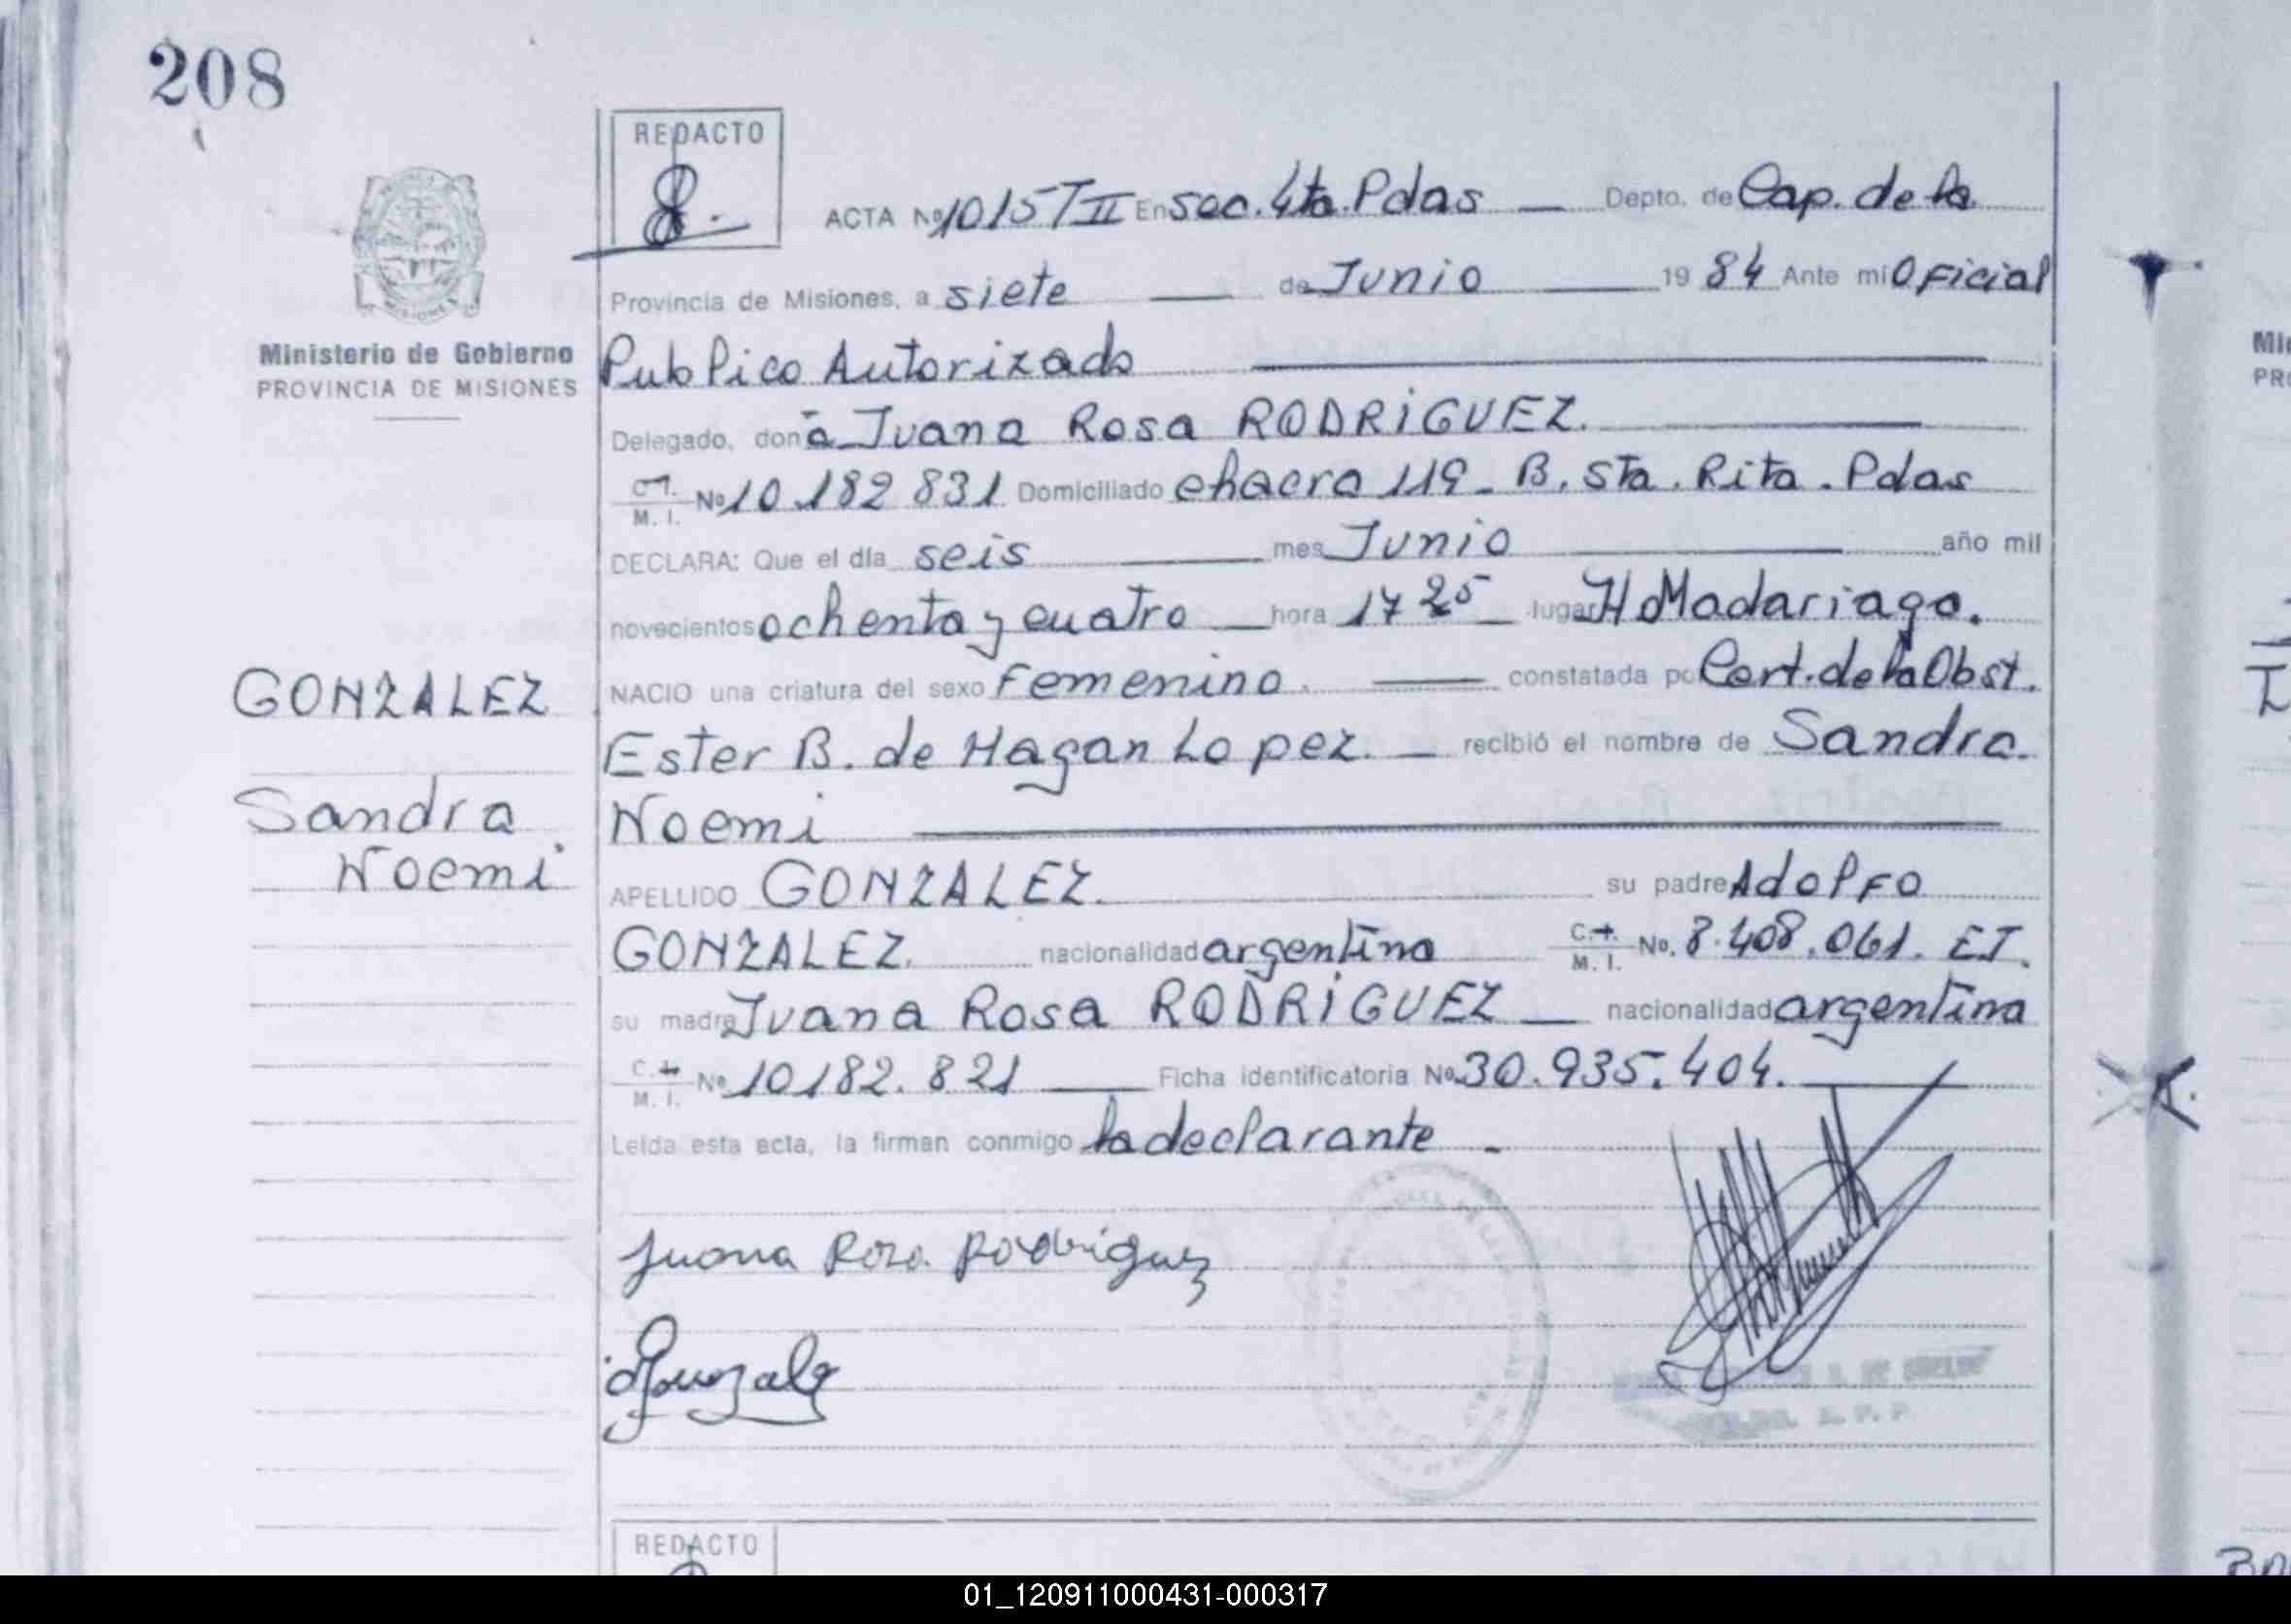 208
REDACTO
ACTA Nº 1015 T II En Sec. 4ta. Pdas Depto. de Cap. de la
Provincia de Misiones, a siete de Junio 19 84 Ante mi Oficial
Ministerio de Gobierno
PROVINCIA DE MISIONES
Publico Autorizado
Delegado, don a Juana Rosa RODRIGUEZ.
C.I. M. I. Nº 10.182 831 Domiciliado chacra 119 - B. Sta. Rita. Pdas
DECLARA: Que el día seis mes Junio año mil
novecientos ochenta y cuatro hora 17 25 lugar H Madariaga.
GONZALEZ
NACIO una criatura del sexo femenino. constatada po Cert. de la Obst.
Ester B. de Hagan Lopez. recibió el nombre de Sandra.
Sandra
Noemi
Noemi
APELLIDO GONZALEZ. su padre Adolfo
GONZALEZ. nacionalidad argentina C.I. M. I. No. 8.408.061. EJ.
su madre Juana Rosa RODRIGUEZ nacionalidad argentina
C.I. M. I. Nº 10182.821 Ficha identificatoria Nº 30.935.404.
Leída esta acta, la firman conmigo la declarante
Juana Rosa Rodriguez
Gonzalez
REDACTO
01_120911000431-000317